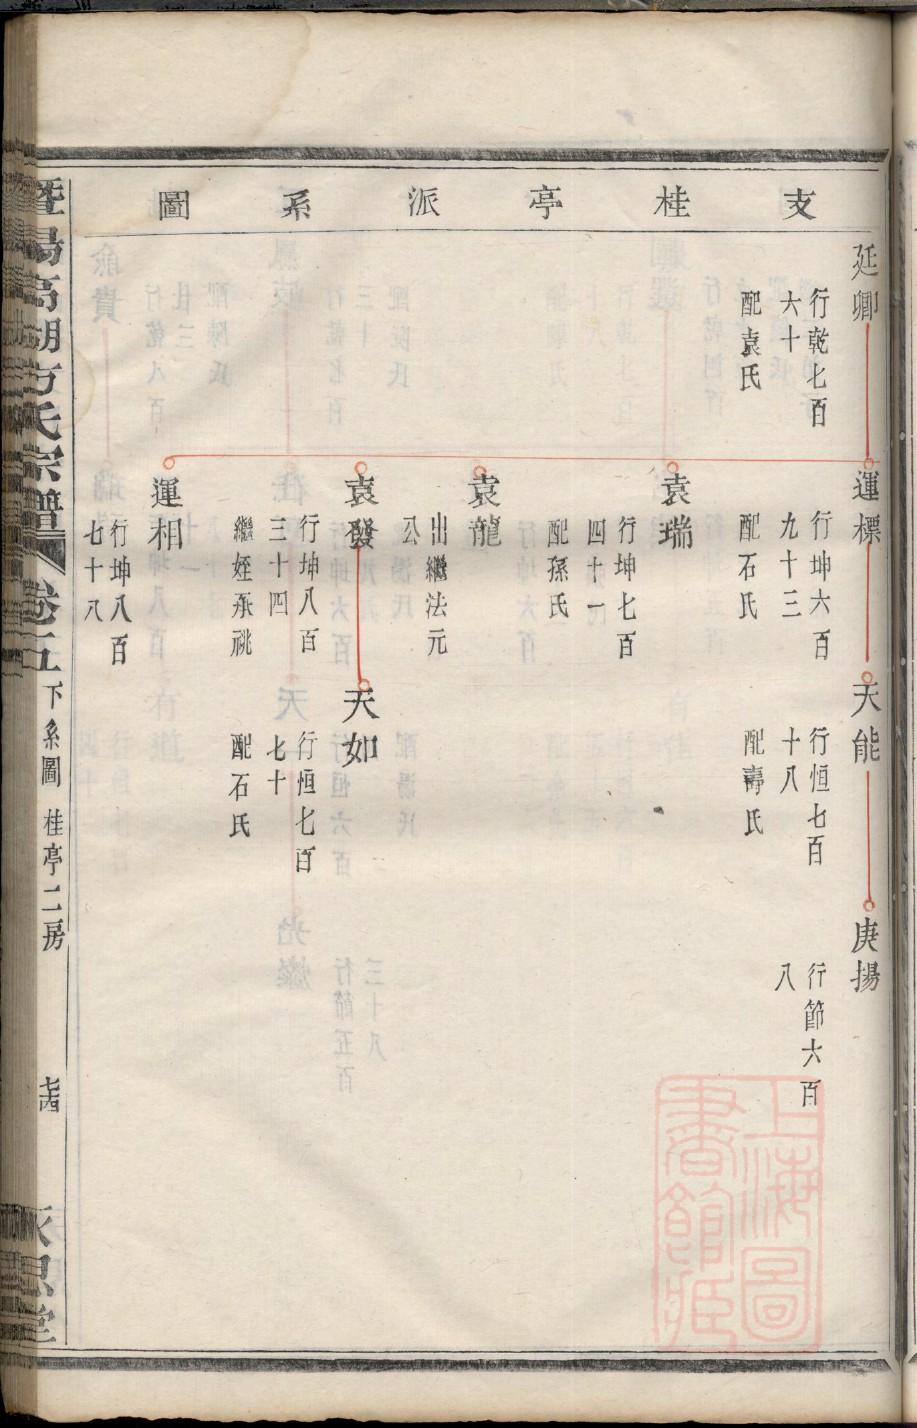 支桂亭派系圖
廷卿
行乾七百
六十
配袁氏
運標
行坤六百
九十三
配石氏
天能
行恒七百
十八
配壽氏
庚揚
行節六百
八
袁瑞
行坤七百
四十一
配孫氏
袁龍
出繼法元
公
袁發
行坤八百
三十四
繼姪承祧
天如
行恒七百
七十
配石氏
運相
行坤八百
七十八
暨陽高湖方氏宗譜
卷五
下系圖 桂亭二房
上海圖
書館藏